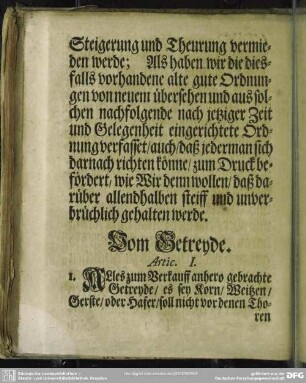 Steigerung und Theurung vermie-
den werde; Als haben wir die dies-
falls vorhandene alte gute Ordnun-
gen von neuem übersehen und aus sol-
chen nachfolgende nach jetziger Zeit
und Gelegenheit eingerichtete Ord-
nung verfasset/ auch/ daß jederman sich
darnach richten könne/ zum Druck be-
fördert/ wie Wir denn wollen/ daß da-
rüber allendhalben steiff und unver-
brüchlich gehalten werde.
Vom Getreyde.
Artic. I.
1. Alles zum Verkauff anhero gebrachte
Getreyde/ es sey Korn/ Weitzen/
Gerste/ oder Hafer/ soll nicht vor denen Tho-
ren